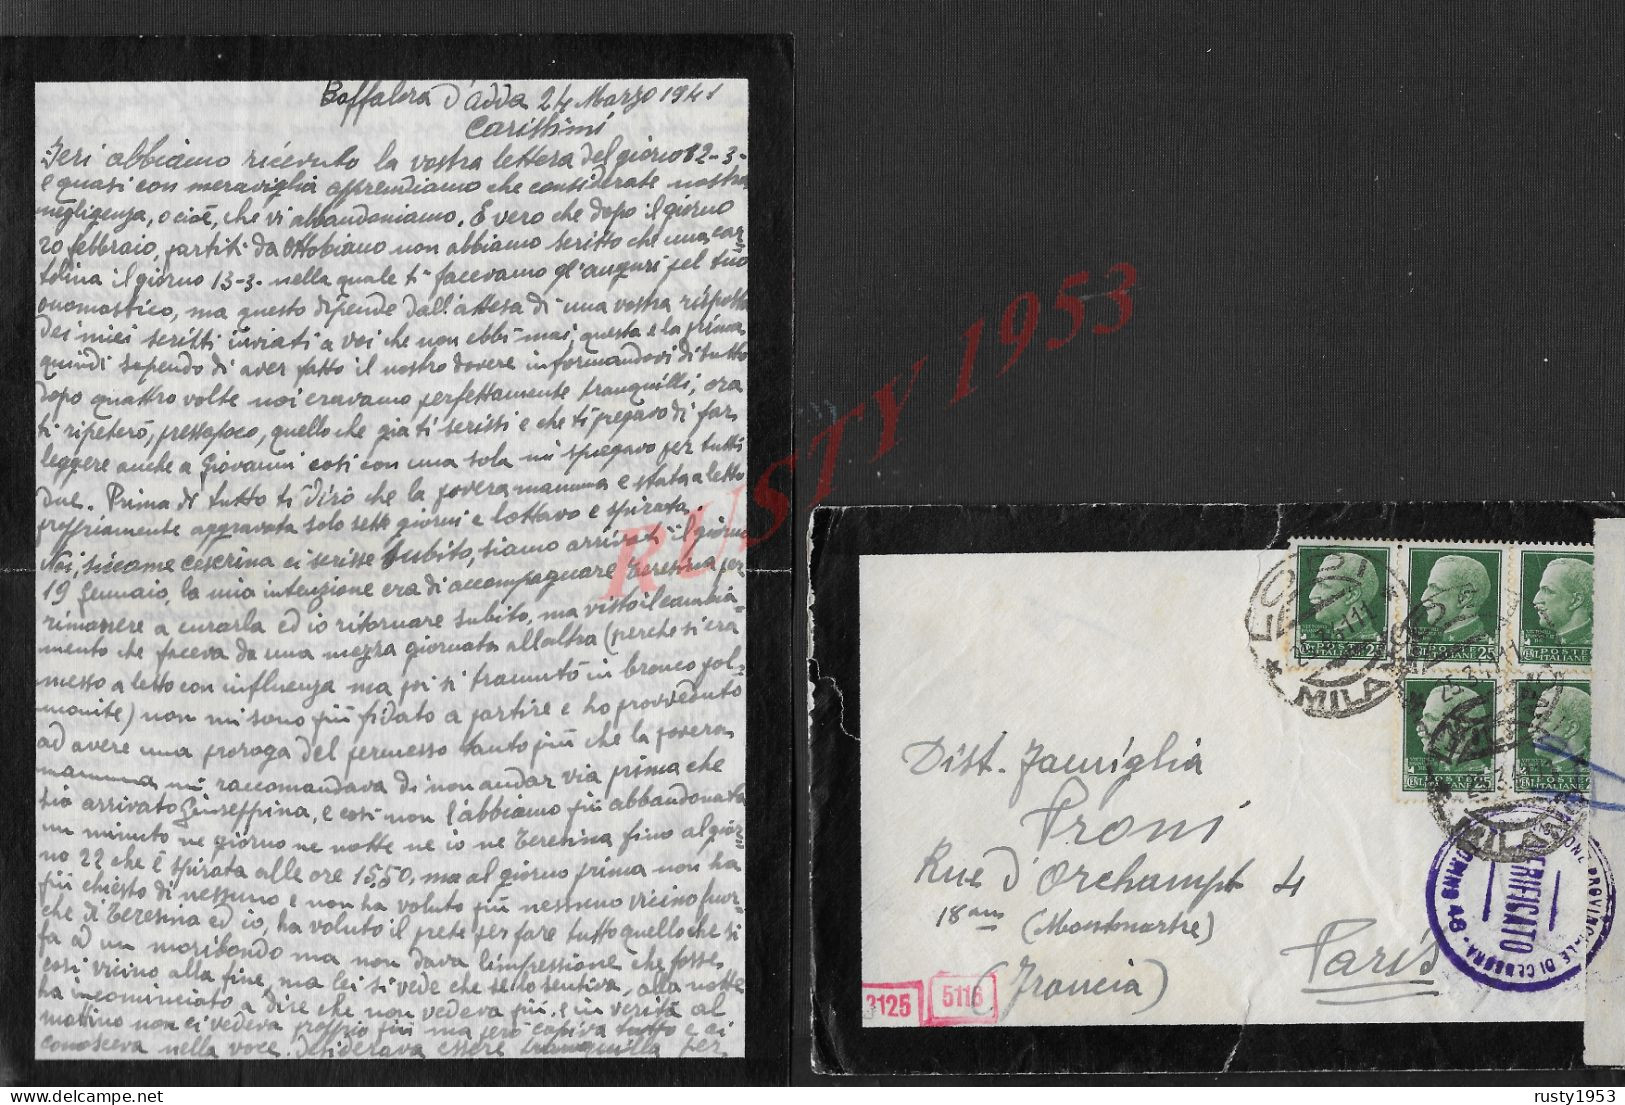 Boffalora d'Adda 24 Marzo 1941
Carissimi
Ieri abbiamo ricevuto la vostra lettera del giorno 12-3-
e quasi con meraviglia apprendiamo che considerate nostra
negligenza, o cioè, che vi abbandoniamo. È vero che dopo il giorno
20 febbraio, partiti da Ottobiano non abbiamo scritto che una car=
tolina il giorno 13-3- nella quale ti facevamo gl'auguri pel tuo
onomastico, ma questo dipende dall'attesa di una vostra risposta
dei miei scritti inviati a voi che non ebbi mai, questa e la prima
quindi sapendo di aver fatto il nostro dovere informandovi di tutto
dopo quattro volte noi eravamo perfettamente tranquilli, ora
ti ripeterò, pressapoco, quello che già ti scrissi e che ti pregavo di far
leggere anche a Giovanni così con una sola mi spiegavo per tutti
due. Prima di tutto ti dirò che la povera mamma e stata a letto
propriamente aggravata solo sette giorni e lottavo e spirata.
Noi, siccome Ceserina ci scrisse subito, siamo arrivati il giorno
19 Gennaio, la mia intenzione era di accompagnare Teresina per
rimanere a curarla ed io ritornare subito, ma visto il cambia-
mento che faceva da una mezza giornata all'altra (perche si era
messo a letto con influenza ma poi si tramutò in bronco pol=
monite) non mi sono più fidato a partire e ho provveduto
ad avere una proroga del permesso tanto più che la povera
mamma mi raccomandava di non andar via prima che
sia arrivato Giuseppina, e così non l'abbiamo più abbandonata
un minuto ne giorno ne notte ne io ne Teresina fino al gior=
no 22 che è spirata alle ore 15,50, ma al giorno prima non ha
più chiesto di nessuno e non ha voluto più nessuno vicino fuor=
che di Teresina ed io, ha voluto il prete per fare tutto quello che si
fa ad un moribondo ma non dava l'impressione che fosse
così vicino alla fine, ma lei si vede che se lo sentiva, alla notte
ha incominciato a dire che non vedeva più, e in verità al
mattino non ci vedeva proprio più ma però capiva tutto e ci
conosceva nella voce. Desiderava essere tranquilla per
RUSTY 1953
LODI
MILANO
POSTE ITALIANE
CENT. 25
Dist. Famiglia
Proni
Rue d'Orchampt 4
18 ans
(Montmartre)
Paris
(Francia)
3125
5116
VERIFICATO
COMMISSIONE PROVINCIALE DI CENSURA - 48
rusty1953